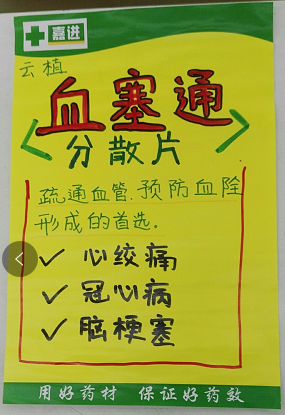 嘉进
云植
血塞通
分散片
疏通血管.预防血险
形成的首选.
心绞痛
冠心病
脑梗塞
用好药材 保证好药效